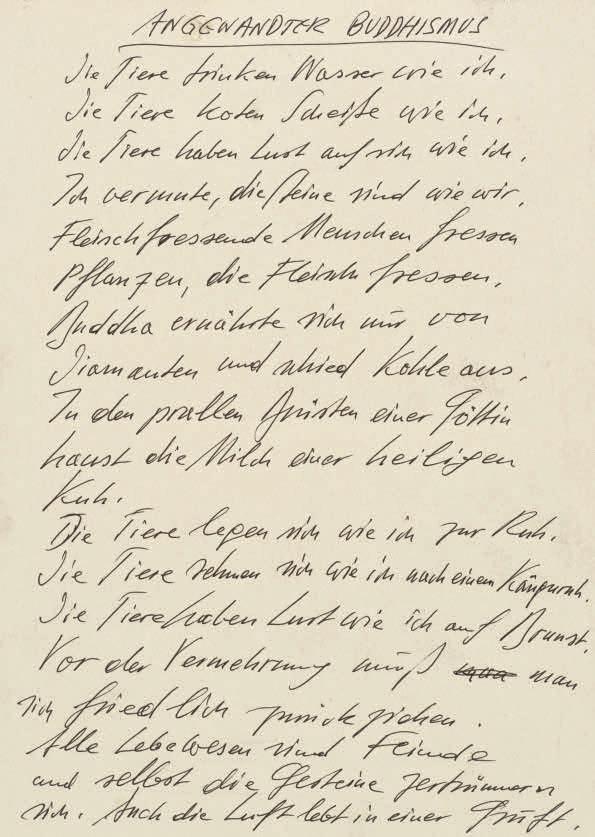 ANGEWANDTER BUDDHISMUS
Die Tiere trinken Wasser wie ich.
Die Tiere koten Scheiße wie ich.
Die Tiere haben Lust auf sich wie ich.
Ich vermute, die Steine sind wie wir.
Fleischfressende Menschen fressen
Pflanzen, die Fleisch fressen.
Buddha ernährte sich nur von
Diamanten und schied Kohle aus.
In den prallen Brüsten einer Göttin
haust die Milch einer heiligen
Kuh.
Die Tiere legen sich wie ich zur Ruh.
Die Tiere sehnen sich wie ich nach einem Känguruh.
Die Tiere haben Lust wie ich auf Brunst.
Vor der Vermehrung muß man
sich friedlich zurückziehen.
Alle Lebewesen sind Feinde
und selbst die Gesteine zertrümmern
sich. Auch die Luft lebt in einer Gruft.